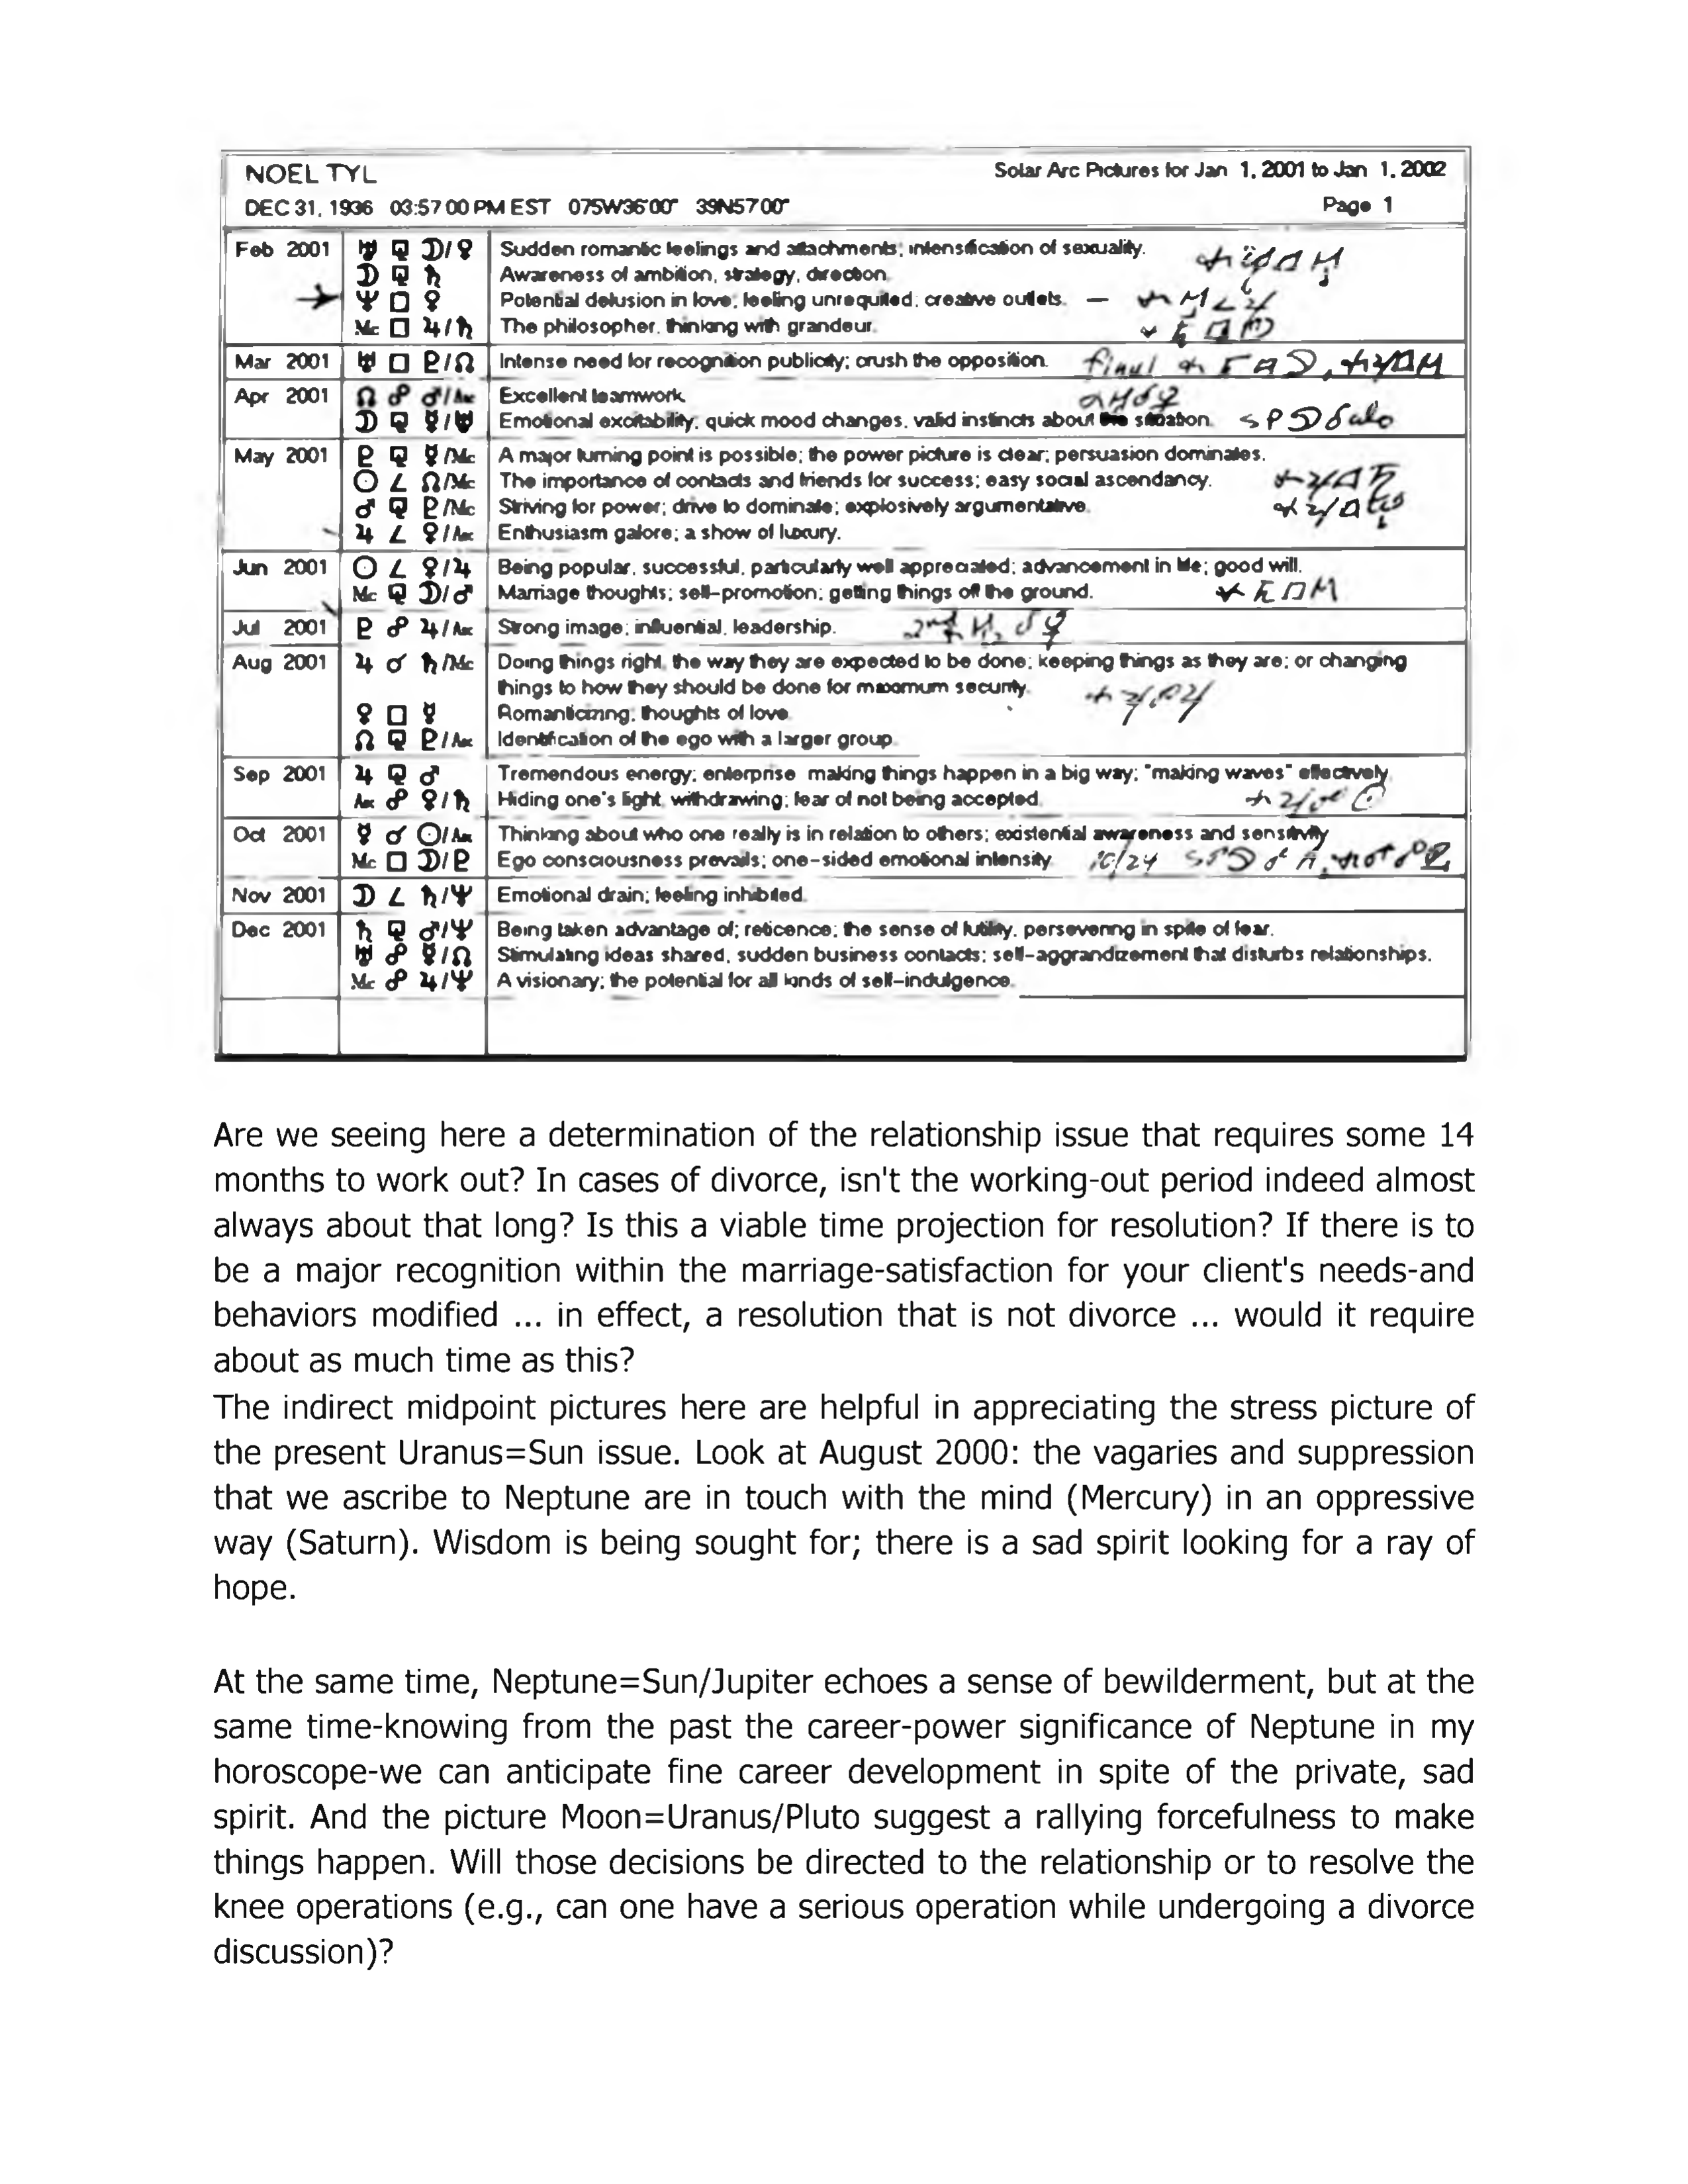 NOEL TYL Solar Arc Pictures for Jan 1, 2001 to Jan 1, 2002
DEC 31, 1936 03:57 00 PM EST 075W36'00" 39N57'00" Page 1
Feb 2001 ♅ ⚼ ☽/♀ Sudden romantic feelings and attachments; intensification of sexuality.
☽ ⚼ ♄ Awareness of ambition, strategy, direction.
♆ □ ♀ Potential delusion in love; feeling unrequited; creative outlets. —
Mc □ ♃/♄ The philosopher, thinking with grandeur.
Mar 2001 ♅ □ ♇/☊ Intense need for recognition publicity; crush the opposition. final
Apr 2001 ☊ ☍ ♂/Asc Excellent teamwork
☽ ⚼ ☿/♅ Emotional excitability; quick mood changes, valid instincts about the situation. SP☽
May 2001 ♇ ⚼ ☿/Mc A major turning point is possible; the power picture is clear; persuasion dominates.
☉ ∠ ☊/Mc The importance of contacts and friends for success; easy social ascendancy.
♂ ⚼ ♇/Mc Striving for power; drive to dominate; explosively argumentative.
♃ ∠ ♀/Asc Enthusiasm galore; a show of luxury.
Jun 2001 ☉ ∠ ♀/♃ Being popular, successful, particularly well appreciated; advancement in life; good will.
Mc ⚼ ☽/♂ Marriage thoughts; self-promotion; getting things off the ground.
Jul 2001 ♇ ☍ ♃/Asc Strong image; influential, leadership. 2nd
Aug 2001 ♃ ☌ ♄/Mc Doing things right, the way they are expected to be done; keeping things as they are; or changing
things to how they should be done for maximum security.
♀ □ ☿ Romanticizing; thoughts of love.
☊ ⚼ ♇/Asc Identification of the ego with a larger group.
Sep 2001 ♃ ⚼ ♂ Tremendous energy; enterprise making things happen in a big way; "making waves" effectively
Asc ☍ ♀/♄ Hiding one's light, withdrawing; fear of not being accepted.
Oct 2001 ☿ ☌ ☉/Asc Thinking about who one really is in relation to others; existential awareness and sensitivity
Mc □ ☽/♇ Ego consciousness prevails; one-sided emotional intensity 10/24
Nov 2001 ☽ ∠ ♄/♆ Emotional drain; feeling inhibited.
Dec 2001 ♄ ⚼ ♂/♆ Being taken advantage of; reticence; the sense of futility, persevering in spite of fear.
♅ ☍ ☿/☊ Stimulating ideas shared, sudden business contacts; self-aggrandizement that disturbs relationships.
Mc ☍ ♃/♆ A visionary; the potential for all kinds of self-indulgence.
Are we seeing here a determination of the relationship issue that requires some 14
months to work out? In cases of divorce, isn't the working-out period indeed almost
always about that long? Is this a viable time projection for resolution? If there is to
be a major recognition within the marriage-satisfaction for your client's needs-and
behaviors modified ... in effect, a resolution that is not divorce ... would it require
about as much time as this?
The indirect midpoint pictures here are helpful in appreciating the stress picture of
the present Uranus=Sun issue. Look at August 2000: the vagaries and suppression
that we ascribe to Neptune are in touch with the mind (Mercury) in an oppressive
way (Saturn). Wisdom is being sought for; there is a sad spirit looking for a ray of
hope.
At the same time, Neptune=Sun/Jupiter echoes a sense of bewilderment, but at the
same time-knowing from the past the career-power significance of Neptune in my
horoscope-we can anticipate fine career development in spite of the private, sad
spirit. And the picture Moon=Uranus/Pluto suggest a rallying forcefulness to make
things happen. Will those decisions be directed to the relationship or to resolve the
knee operations (e.g., can one have a serious operation while undergoing a divorce
discussion)?